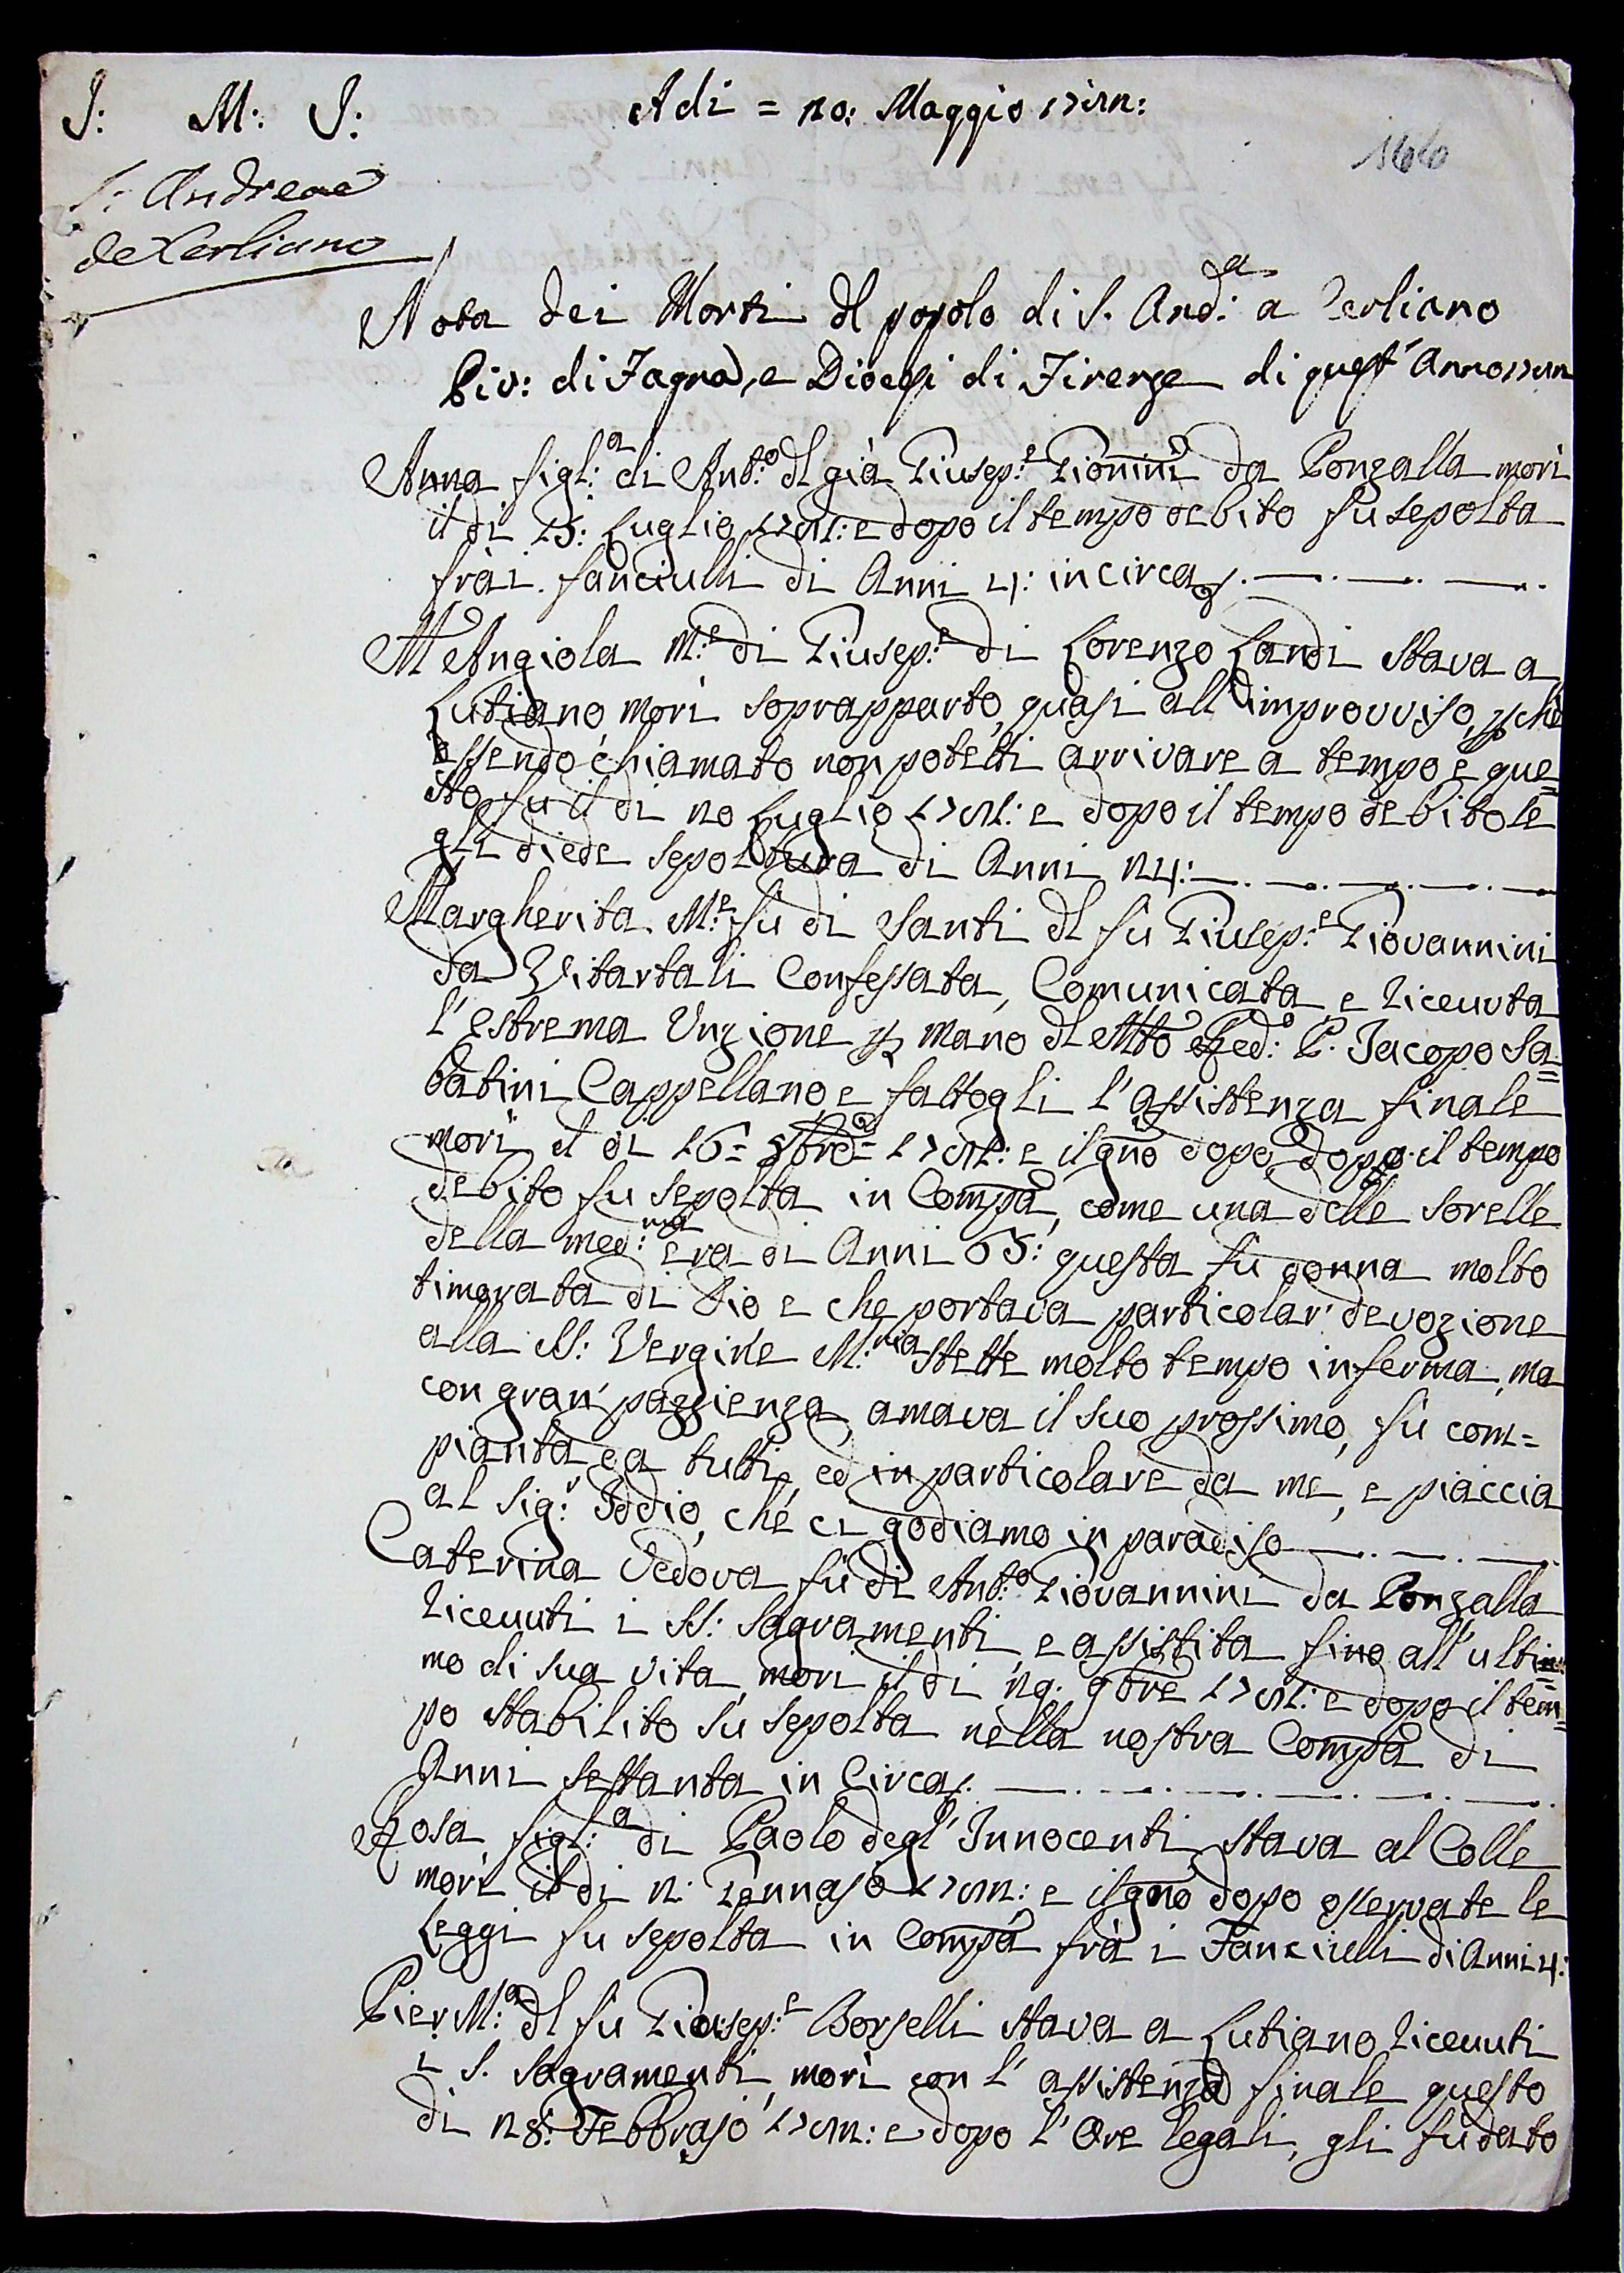 J: M: J: Adi = 20: Maggio
166
S: Andreae
de Cerliano
Nota dei Morti dl popolo di S. And:a a Cerliano
Piv: di Fagna, e Diocesi di Firenze di quest' Anno
Anna figl:a di Ant:o dl già Giusep:e Gionini da Ponzalla morì
il di 15: Luglio e dopo il tempo debito fu sepolta
frà i fanciulli di Anni 4: incirca
M Angiola M:e di Giusep:e di Lorenzo Landi stava a
Lutiano, morì soprapparto, quasi all'improvviso, pchè
essendo chiamato non potetti arrivare a tempo e que=
sto fu il di 20 Luglio e dopo il tempo debito se
gli diede sepoltura di Anni 24:
Margherita M:e fù di Santi dl fu Giusep:e Giovannini
da Vitartali Confessata, Comunicata, e riceuuta
l'estrema Unzione p mano dl Mto Red:o P. Jacopo Sa=
batini Cappellano e fattogli l'assistenza finale
morì il di 16= e il gno dopo, dopo il tempo
debito fu sepolta in Compa, come una delle sorelle
della med:ma era di Anni 65: questa fù donna molto
timorata di Dio e che portava particolar' devozione
alla SS: Vergine M:ria stette molto tempo inferma, ma
con gran' pazzienza, amava il suo prossimo, fù com=
pianta da tutti, ed in particolare da me, e piaccia
al Sig:r Iddio, che ci godiamo in paradiso
Caterina Vedova fù di Ant:o Giovannini da Ponzalla
riceuuti i SS: Sagramenti, e assistita fino all'ulti=
mo di sua vita, morì il di 29. 9bre e dopo il tem=
po stabilito fu sepolta nella nostra Compa di
Anni settanta in Circa
Rosa figl:a di Paolo degl'Innocenti, stava al Colle
morì il di 2: Gennajo e il gno dopo osservate le
leggi fu sepolta in Compa frà i Fanciulli di Anni 4:
Pier M:a dl fu Giusep:e Borselli stava a Lutiano riceuuti
i S. Sagramenti, morì con l'assistenza finale questo
di 28: Febbrajo e dopo l'Ore legali, gli fù dato